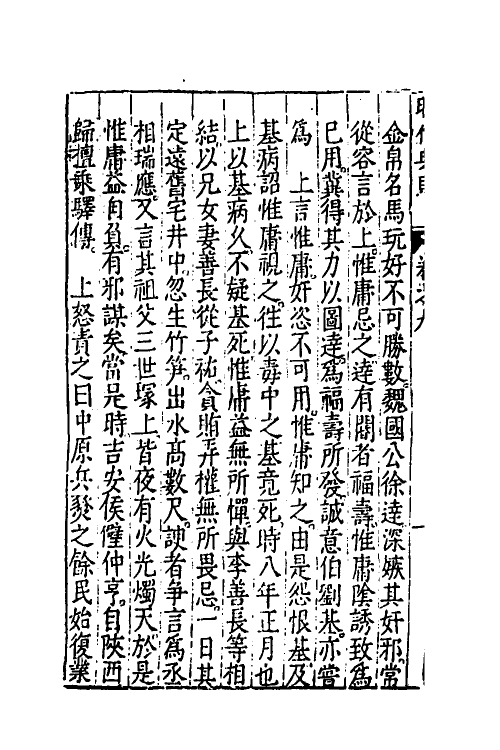 金帛名馬玩好不可勝數魏國公徐達深嫉其奸邪常
從容言於上惟庸忌之達有閽者福壽惟庸陰誘致爲
已用冀得其力以圖達爲福壽所發誠意伯劉基亦嘗
爲　上言惟庸奸恣不可用惟庸知之由是怨恨基及
基病詔惟庸視之往以毒中之基竟死時八年正月也
上以基病久不疑基死惟庸益無所憚與李善長等相
結以兄女妻善長從子祐貪賄弄權無所畏忌一日其
定遠舊宅井中忽生竹笋出水高數尺諛者爭言爲丞
相瑞應又言其祖父三世塚上皆夜有火光燭天於是
惟庸益自負有邪謀矣當是時吉安侯陸仲亨自陝西
歸擅乘驛傳　上怒責之曰中原兵燹之餘民始復業